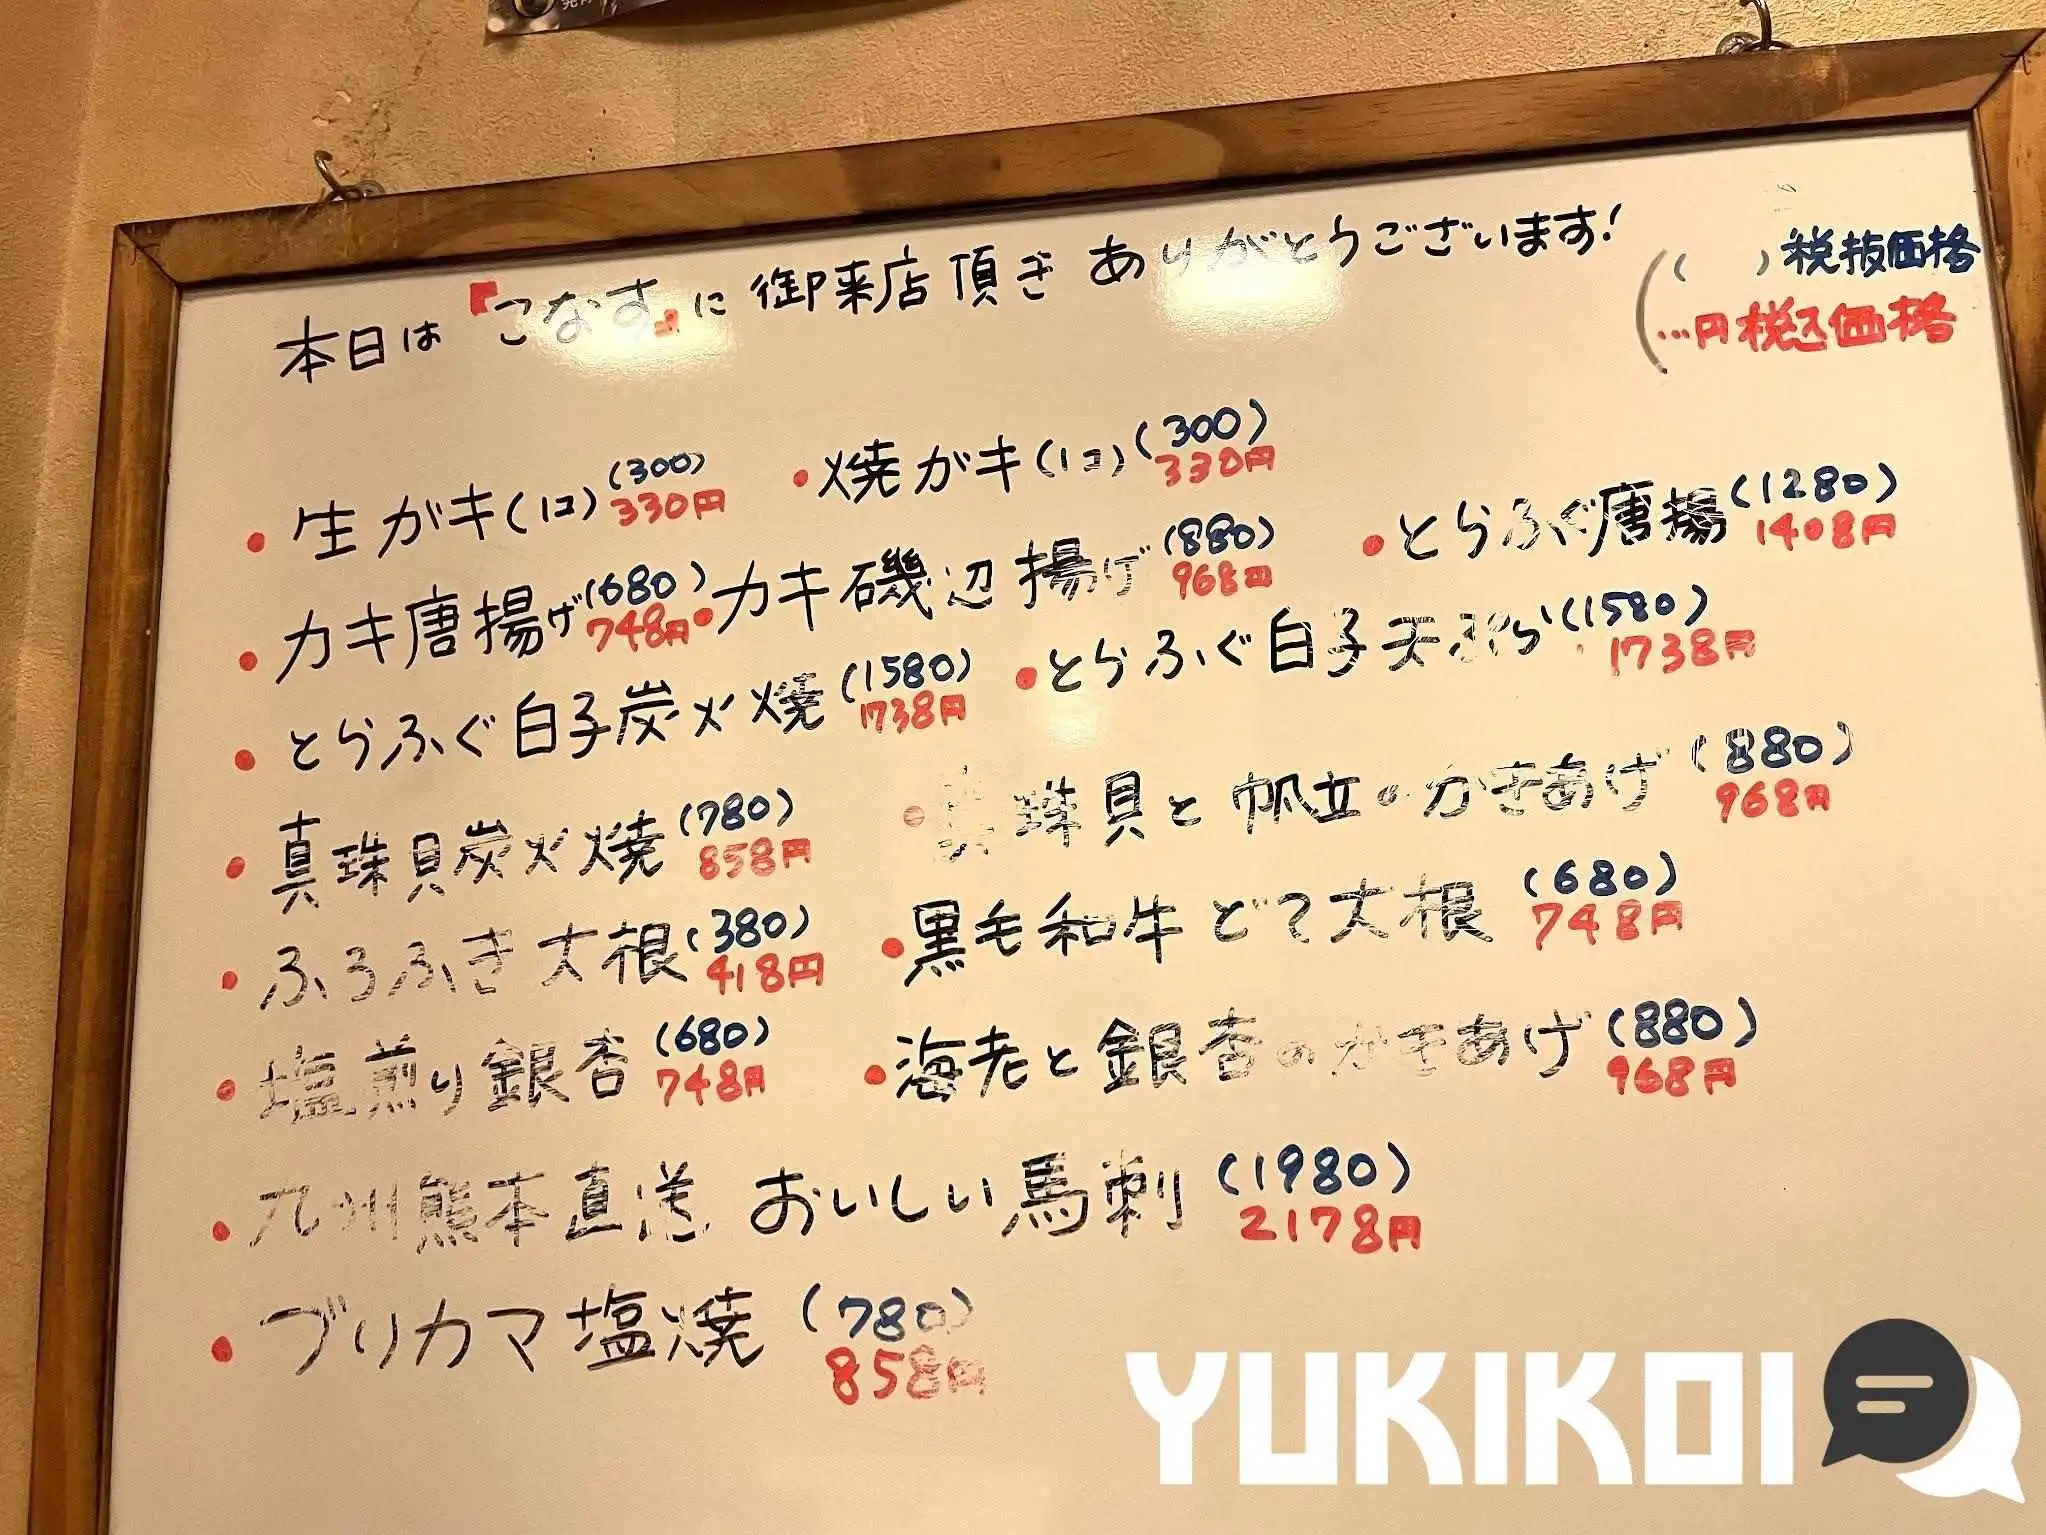 本日は『こなす』に御来店頂きありがとうございます!
( )税抜価格
…円税込価格
・生ガキ(1コ)(300)330円 ・焼ガキ(1コ)(300)330円
・カキ唐揚げ(680)748円 ・カキ磯辺揚げ(880)968円 ・とらふぐ唐揚(1280)1408円
・とらふぐ白子炭火焼(1580)1738円 ・とらふぐ白子天ぷら(1580)1738円
・真珠貝炭火焼(780)858円 ・真珠貝と帆立のかきあげ(880)968円
・ふろふき大根(380)418円 ・黒毛和牛どて大根(680)748円
・塩煎り銀杏(680)748円 ・海老と銀杏のかきあげ(880)968円
・九州熊本直送 おいしい馬刺(1980)2178円
・ブリカマ塩焼(780)858円
YUKIKOI